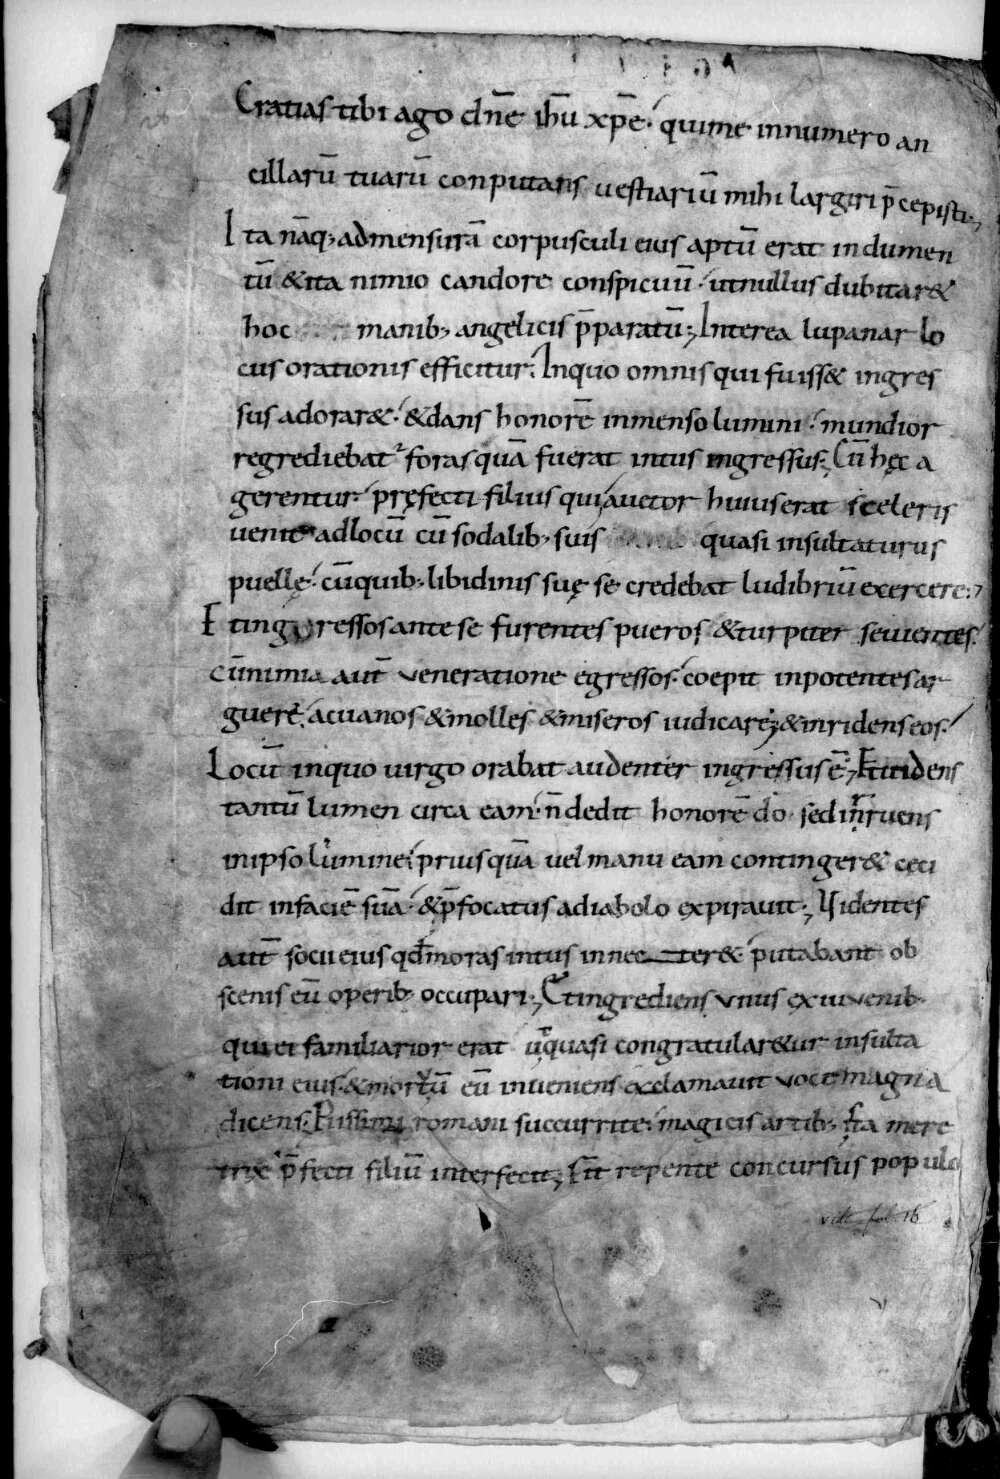 Gratias tibi ago dn̄e ihū xp̄e· quime innumero an
cillarū tuarū conputans vestiariū mihi largiri p̄cepisti;
Ita nāq; admensurā corpusculi eius aptū erat indumen
tū &ita nimio candore conspicuū· utnullus dubitar&
hoc manib; angelicis p̄paratū; Interea lupanar lo
cus orationis efficitur; Inquo omnis qui fuiss& ingres
sus adorar&· &dans honorē inmenso lumini· mundior
regrediebat᷑ foras quā fuerat intus ingressus; Cū hęc a
gerentur pręfecti filius qui auctor huius erat sceleris
venit adlocū cū sodalib; suis quasi insultaturus
puellę· cū quib; libidinis suę se credebat ludibriū exercere;
Et ingressos ante se furentes pueros &turpiter sevientes·
cū nimia aut̄ veneratione egressos· coepit inpotentes ar
guere· acvanos &molles &miseros iudicare; &inridens eos·
Locū inquo virgo orabat audenter ingressus ē; Et videns
tantū lumen circa eam· n̄ dedit honorē dō· sed inruens
inipso lumine· priusquā vel manu eam continger& ceci
dit infaciē suā· &p̄focatus adiabolo expiravit; Videntes
aut̄ socii eius qđ moras intus innecter& putabant ob
scenis eū operib; occupari; Et ingrediens vnus ex iuvenib;
qui ei familiarior erat quasi congratular&ur insulta
tioni eius· &mortuū eū inveniens exclamavit voce magna
dicens· Piissimi romani succurrite· magicis artib; ista mere
trix p̄fecti filiū interfecit; Fit repente concursus populo